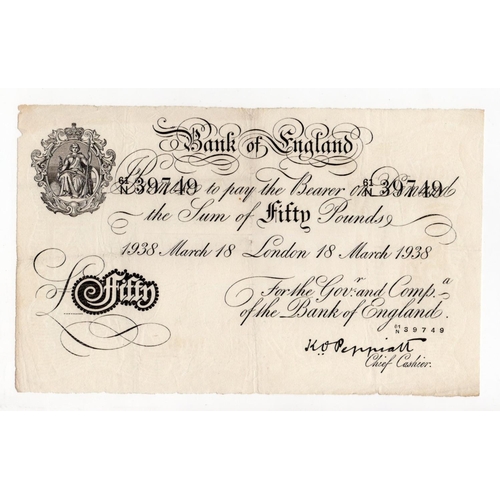 Bank of England
61/N 39749 Promise to pay the Bearer on Demand 61/N 39749
the Sum of Fifty Pounds
1938 March 18 London 18 March 1938
£Fifty
For the Gov.r and Comp.a
of the Bank of England.
61/N 39749
K.O Peppiatt
Chief Cashier.